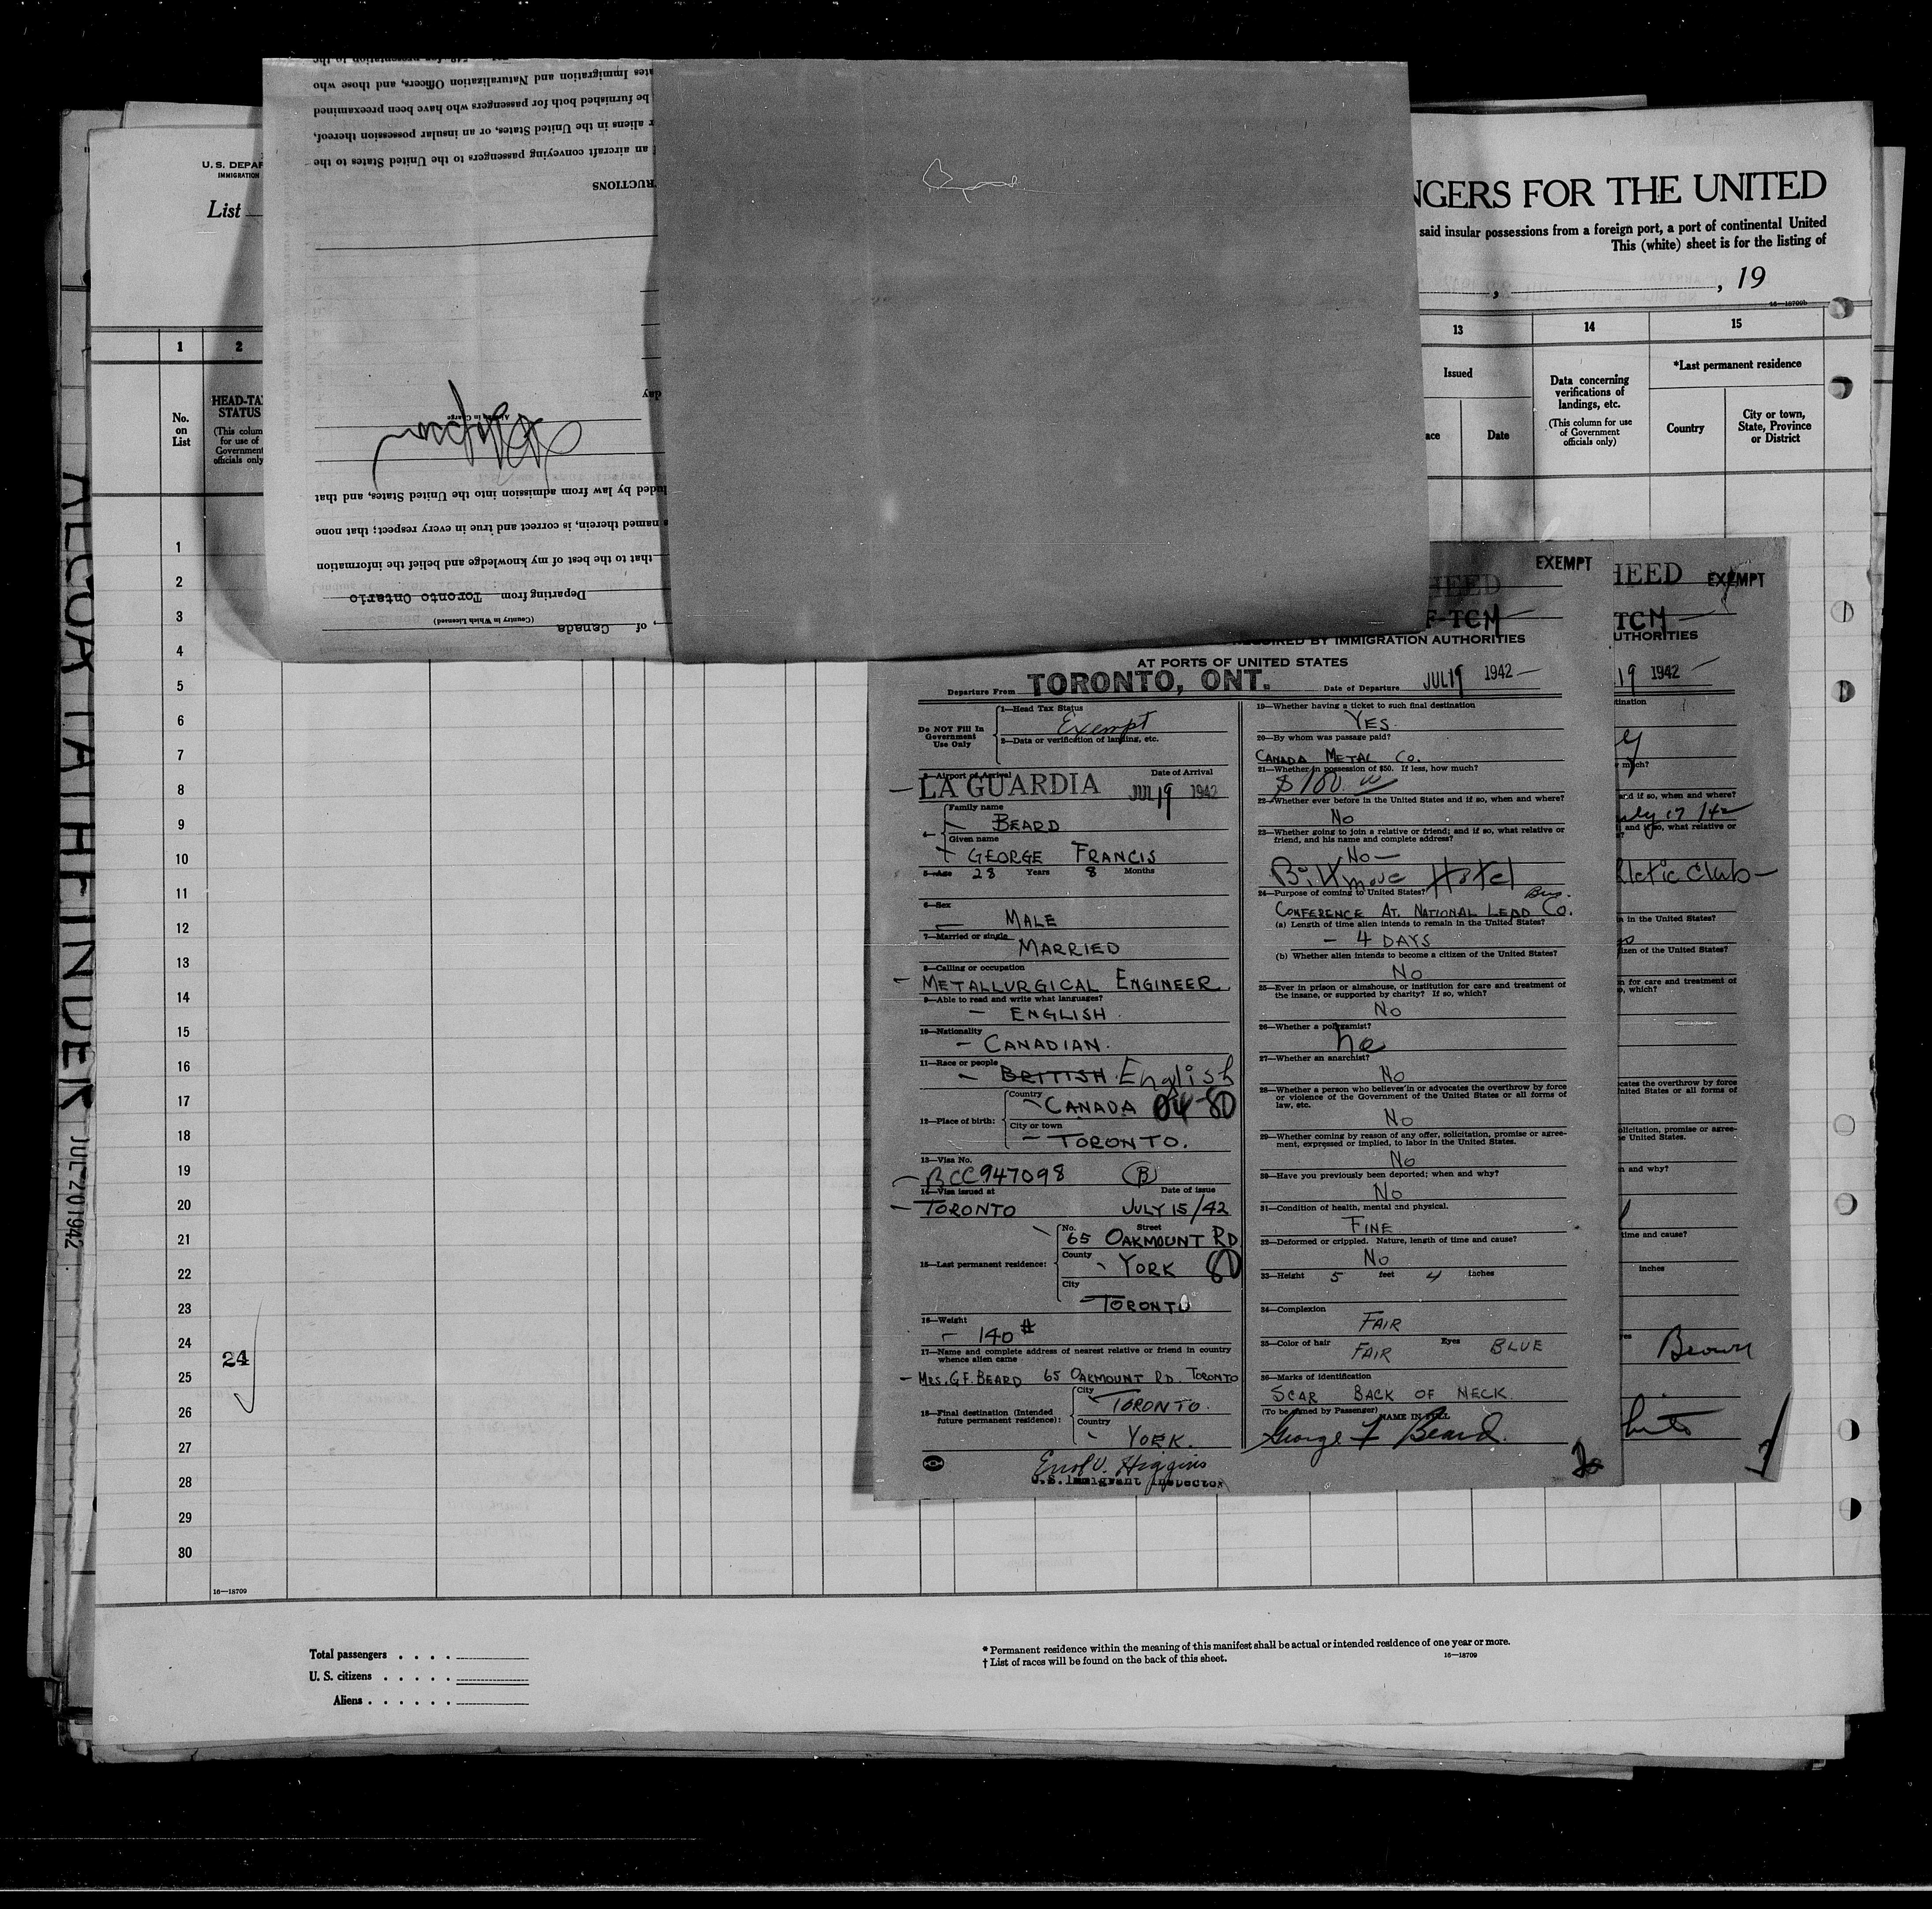 ates Immigration and Naturalization Officers, and those who
be furnished both for passengers who have been preexamined
r aliens in the United States, or an insular possession thereof,
an aircraft conveying passengers to the United States to the
RUCTIONS
day
luded by law from admission into the United States, and that
s named therein, is correct and true in every respect; that none
that to the best of my knowledge and belief the information
Departing from Toronto Ontario
(Country in Which Licensed)
, of Canada
U. S. DEPAR
IMMIGRATION
List
NGERS FOR THE UNITED
said insular possessions from a foreign port, a port of continental United
This (white) sheet is for the listing of
, , 19
16—18709b
1 2 13 14 15
No.
on
List
HEAD-TAX
STATUS
(This column
for use of
Government
officials only)
Issued
ace Date
Data concerning
verifications of
landings, etc.
(This column for use
of Government
officials only)
*Last permanent residence
Country
City or town,
State, Province
or District
1
2
3
4
5
6
7
8
9
10
11
12
13
14
15
16
17
18
19
20
21
22
23
24
25
26
27
28
29
30
24
16—18709
JUL 20 1942
HEED EXEMPT
F-TCM
REQUIRED BY IMMIGRATION AUTHORITIES
AT PORTS OF UNITED STATES
Departure From TORONTO, ONT. Date of Departure JUL 19 1942
Do NOT Fill In
Government
Use Only
1—Head Tax Status
Exempt
2—Data or verification of landing, etc.
3—Airport of Arrival Date of Arrival
LA GUARDIA JUL 19 1942
4—
Family name
BEARD
Given name
GEORGE FRANCIS
5—Age 28 Years 8 Months
6—Sex
MALE
7—Married or single MARRIED
8—Calling or occupation
METALLURGICAL ENGINEER
9—Able to read and write what languages?
ENGLISH
10—Nationality
CANADIAN.
11—Race or people
BRITISH English
12—Place of birth:
Country
CANADA 04-80
City or town
TORONTO.
13—Visa No.
BCC947098 B
14—Visa issued at Date of issue
TORONTO JULY 15/42
15—Last permanent residence:
No. Street
65 OAKMOUNT RD
County
YORK 80
City
TORONTO
16—Weight
140 #
17—Name and complete address of nearest relative or friend in country
whence alien came
MRS. G.F. BEARD 65 OAKMOUNT RD. TORONTO
18—Final destination (Intended
future permanent residence):
City
TORONTO.
Country
YORK.
Errol V. Higgins
U.S. Immigrant Inspector
19—Whether having a ticket to such final destination
YES.
20—By whom was passage paid?
CANADA METAL CO.
21—Whether in possession of $50. If less, how much?
$100.00
22—Whether ever before in the United States and if so, when and where?
NO
23—Whether going to join a relative or friend; and if so, what relative or
friend, and his name and complete address?
NO—
Biltmore Hotel
24—Purpose of coming to United States? Bus.
CONFERENCE AT. NATIONAL LEAD CO.
(a) Length of time alien intends to remain in the United States?
— 4 DAYS
(b) Whether alien intends to become a citizen of the United States?
NO
25—Ever in prison or almshouse, or institution for care and treatment of
the insane, or supported by charity? If so, which?
NO
26—Whether a polygamist?
no
27—Whether an anarchist?
NO
28—Whether a person who believes in or advocates the overthrow by force
or violence of the Government of the United States or all forms of
law, etc.
NO
29—Whether coming by reason of any offer, solicitation, promise or agree-
ment, expressed or implied, to labor in the United States.
NO
30—Have you previously been deported; when and why?
NO
31—Condition of health, mental and physical.
FINE
32—Deformed or crippled. Nature, length of time and cause?
NO
33—Height 5 feet 4 inches
34—Complexion
FAIR
35—Color of hair Eyes
FAIR BLUE
36—Marks of identification
SCAR BACK OF NECK.
(To be signed by Passenger) NAME IN FULL
George F Beard.
HEED EXEMPT
TCM
UTHORITIES
19 1942
tination
much?
and if so, when and where?
July 17/42
and if so, what relative or
letic Club—
n in the United States?
izen of the United States?
n for care and treatment of
o, which?
cates the overthrow by force
nited States or all forms of
olicitation, promise or agree-
e United States.
n and why?
time and cause?
inches
yes Brown
Total passengers . . . .
U. S. citizens . . . . .
Aliens . . . . . .
* Permanent residence within the meaning of this manifest shall be actual or intended residence of one year or more.
† List of races will be found on the back of this sheet.
16—18709